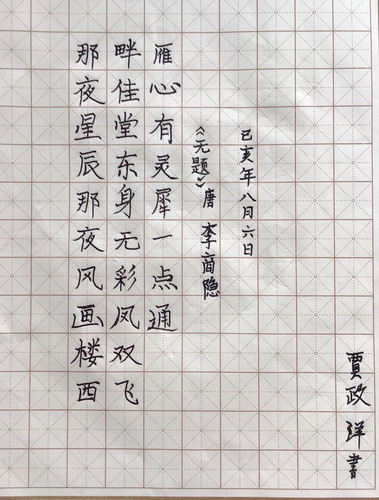 那夜星辰那夜风画楼西
畔佳堂东身无彩凤双飞
雁心有灵犀一点通
《无题》唐 李商隐
己亥年八月六日
賈政洋書